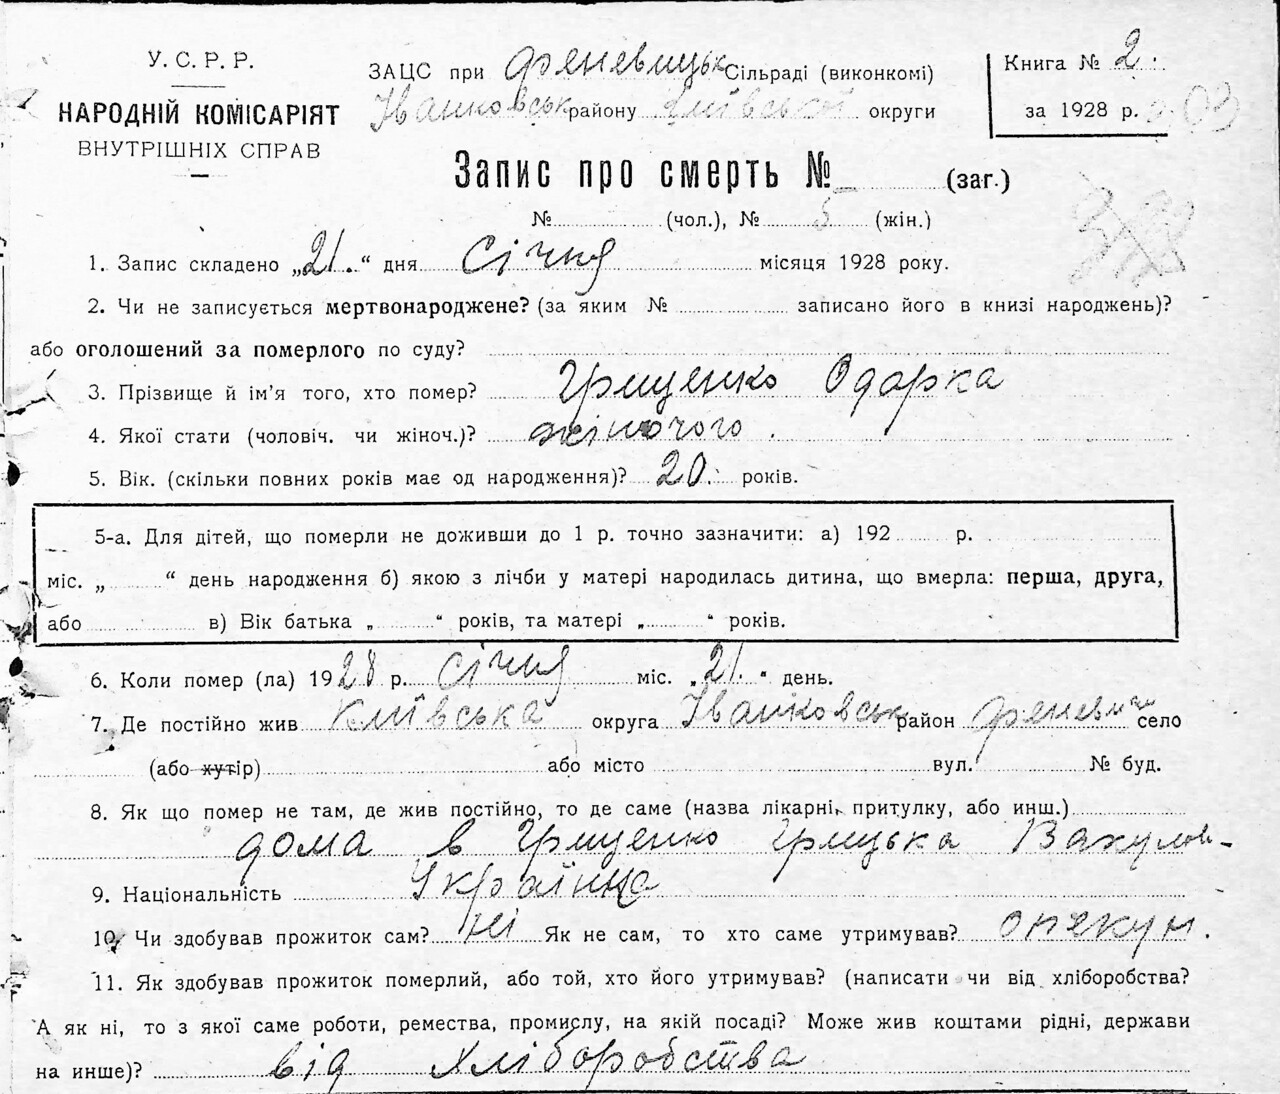 У. С. Р. Р.
НАРОДНІЙ КОМІСАРІЯТ
ВНУТРІШНІХ СПРАВ
ЗАЦС при Феневицьк Сільраді (виконкомі)
Іванковськ району Київської округи
Книга № 2.
за 1928 р.
Запис про смерть № (заг.)
№ (чол.), № 5 (жін.)
1. Запис складено „21.“ дня Січня місяця 1928 року.
2. Чи не записується мертвонароджене? (за яким № записано його в книзі народжень)?
або оголошений за померлого по суду?
3. Прізвище й ім'я того, хто помер? Грищенко Одарка
4. Якої стати (чоловіч. чи жіноч.)? жіночого.
5. Вік. (скільки повних років має од народження)? 20. років.
5-а. Для дітей, що померли не доживши до 1 р. точно зазначити: а) 192 р.
міс. „ “ день народження б) якою з лічби у матері народилась дитина, що вмерла: перша, друга,
або в) Вік батька „ “ років, та матері „ “ років.
6. Коли помер (ла) 1928 р. Січня міс. „21.“ день.
7. Де постійно жив Київська округа Іванковськ район Феневичи село
(або хутір) або місто вул. № буд.
8. Як що помер не там, де жив постійно, то де саме (назва лікарні, притулку, або инш.)
дома в Грищенко Грицька Вакулов-
9. Національність Українка
10. Чи здобував прожиток сам? Ні Як не сам, то хто саме утримував? опекун.
11. Як здобував прожиток померлий, або той, хто його утримував? (написати чи від хліборобства?
А як ні, то з якої саме роботи, ремества, промислу, на якій посаді? Може жив коштами рідні, держави
на инше)? від Хліборобства